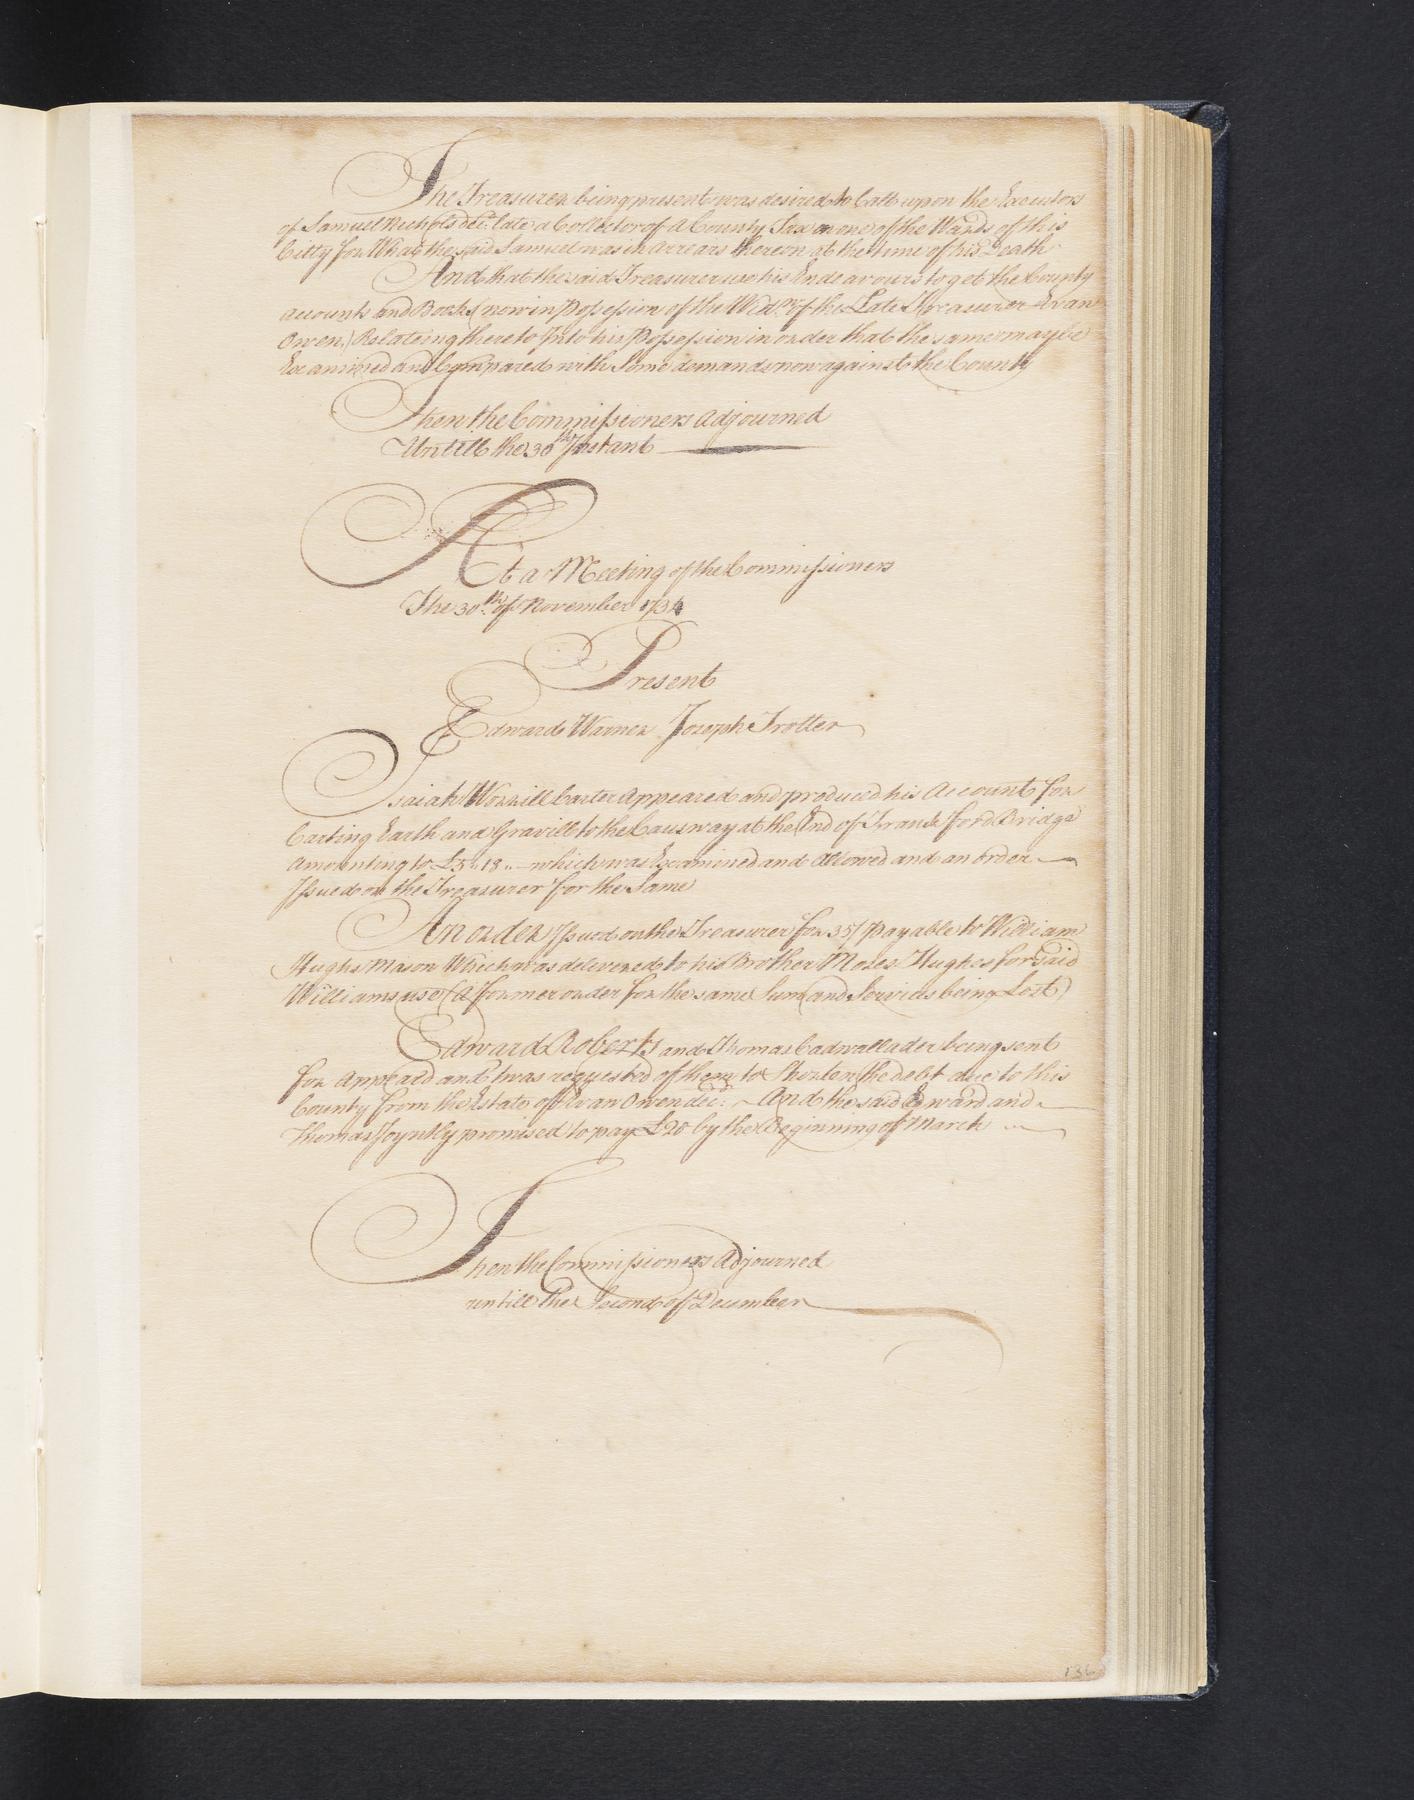 The Treasurer being present was desired to Call upon the Executors
of Samuel Nichols dec.d late a Collector of a County Tax in one of the Wards of this
Citty for What the said Samuel was in Arrears thereon at the time of his Death
And that the said Treasurer use his Endeavours to get the County
accounts and Books (now in Possession of the Wid.w of the Late Threasurer Evan
Owen) Relateing thereto Into his Possession in order that the same may be
Examined and Compared with Some demands now against the County
Then the Commissioners adjourned
Untill the 30th Instant
At a Meeting of the Commissioners
The 30th of November 1734
Present
Edward Warner Joseph Trotter
Isaiah Worrill Carter Appeared and produced his Account for
Carting Earth and Gravill to the Causway at the End of Frankford Bridge
Amounting to £5,,18,,– which was Examined and Allowed and an order
Issued on the Treasurer for the Same
An order Issued on the Treasurer for 35/ payable to William
Hughs Mason Which was delivered to his Brother Moses Hughes for said
Williams use (A former order for the same Sum and Services being Lost)
Edward Roberts and Thomas Cadwallader being sent
for Appeard and twas requested of them to Shorten the debt due to this
County from the Estate of Evan Owen dec.d And the said Edward and
Thomas Joyntly promised to pay £20 by the Beginning of March
Then the Commissioners Adjourned
untill the Second of December
136